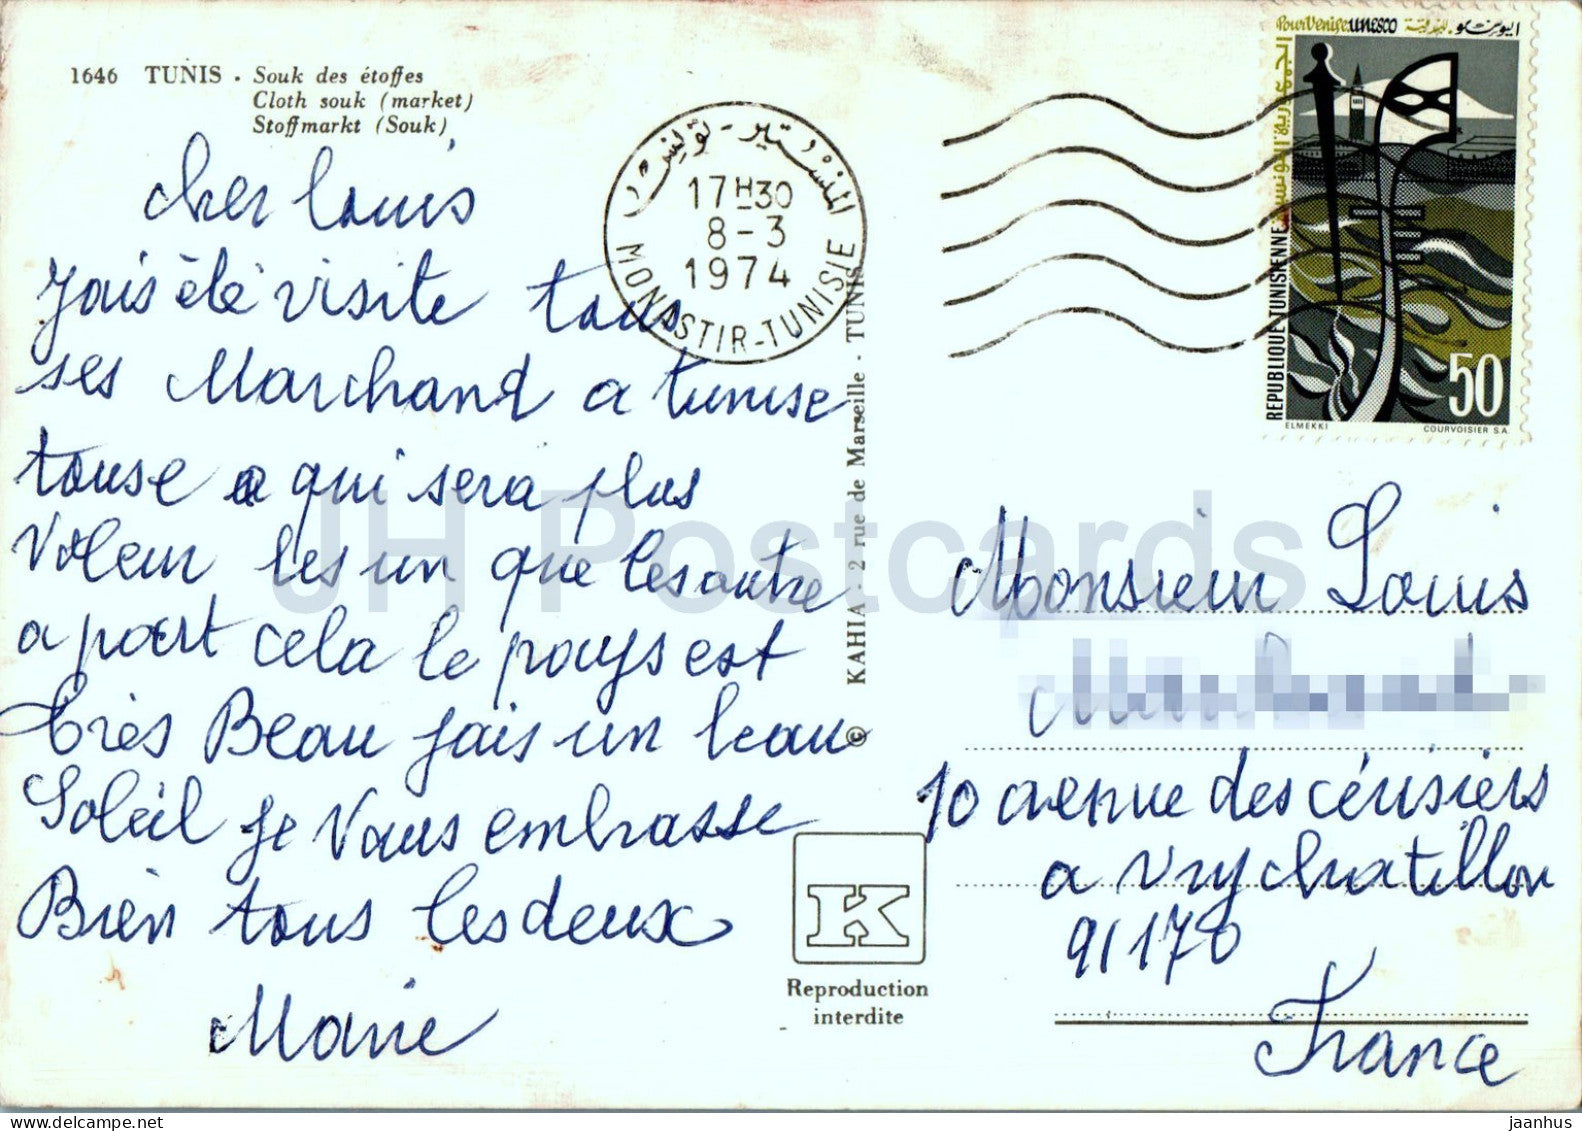 1646 TUNIS . Souk des étoffes
Cloth souk (market)
Stoffmarkt (Souk)
cher louis
jais été visite tous
ses Marchand a tunise
touse a qui sera plus
voleur les un que les autre
a part cela le pays est
très Beau jais un beau
Soleil je vous embrasse
Bien tous les deux
Marie
المنستير - تونس
17H30
8-3
1974
MONASTIR-TUNISIE
© KAHIA - 2 rue de Marseille - TUNIS
K
Reproduction
interdite
Pour Venise.unesco
اليونسكو
الجمهورية التونسية
REPUBLIQUE TUNISIENNE
50
ELMEKKI
COURVOISIER S.A.
Monsieur Louis
10 avenue des cérisiers
a Viry chatillon
91170
France
JH Postcards
jaanhus